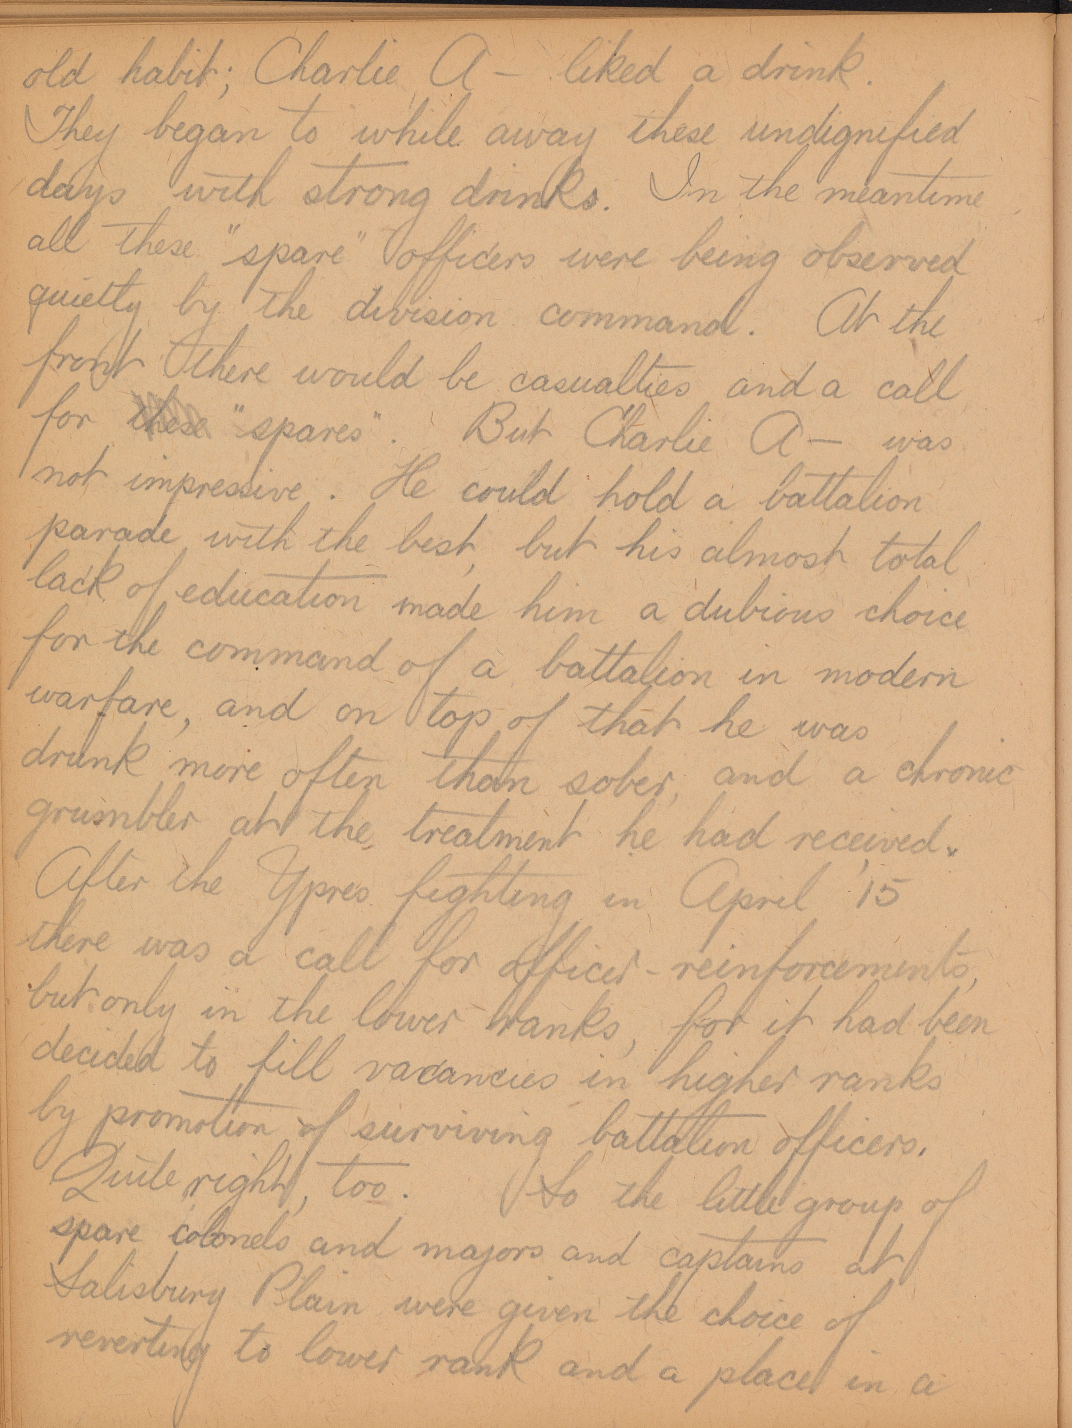 old habit; Charlie A— liked a drink.
They began to while away these undignified
days with strong drinks. In the meantime
all these "spare" officers were being observed
quietly by the division command. At the
front there would be casualties and a call
for these "spares". But Charlie A— was
not impressive. He could hold a battalion
parade with the best, but his almost total
lack of education made him a dubious choice
for the command of a battalion in modern
warfare, and on top of that he was
drunk more often than sober, and a chronic
grumbler at the treatment he had received.
After the Ypres fighting in April '15
there was a call for officer-reinforcements,
but only in the lower ranks, for it had been
decided to fill vacancies in higher ranks
by promotion of surviving battalion officers.
Quite right, too. So the little group of
spare colonels and majors and captains at
Salisbury Plain were given the choice of
reverting to lower rank and a place in a